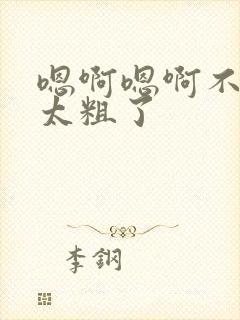 嗯啊嗯啊不
太粗了
李鋼